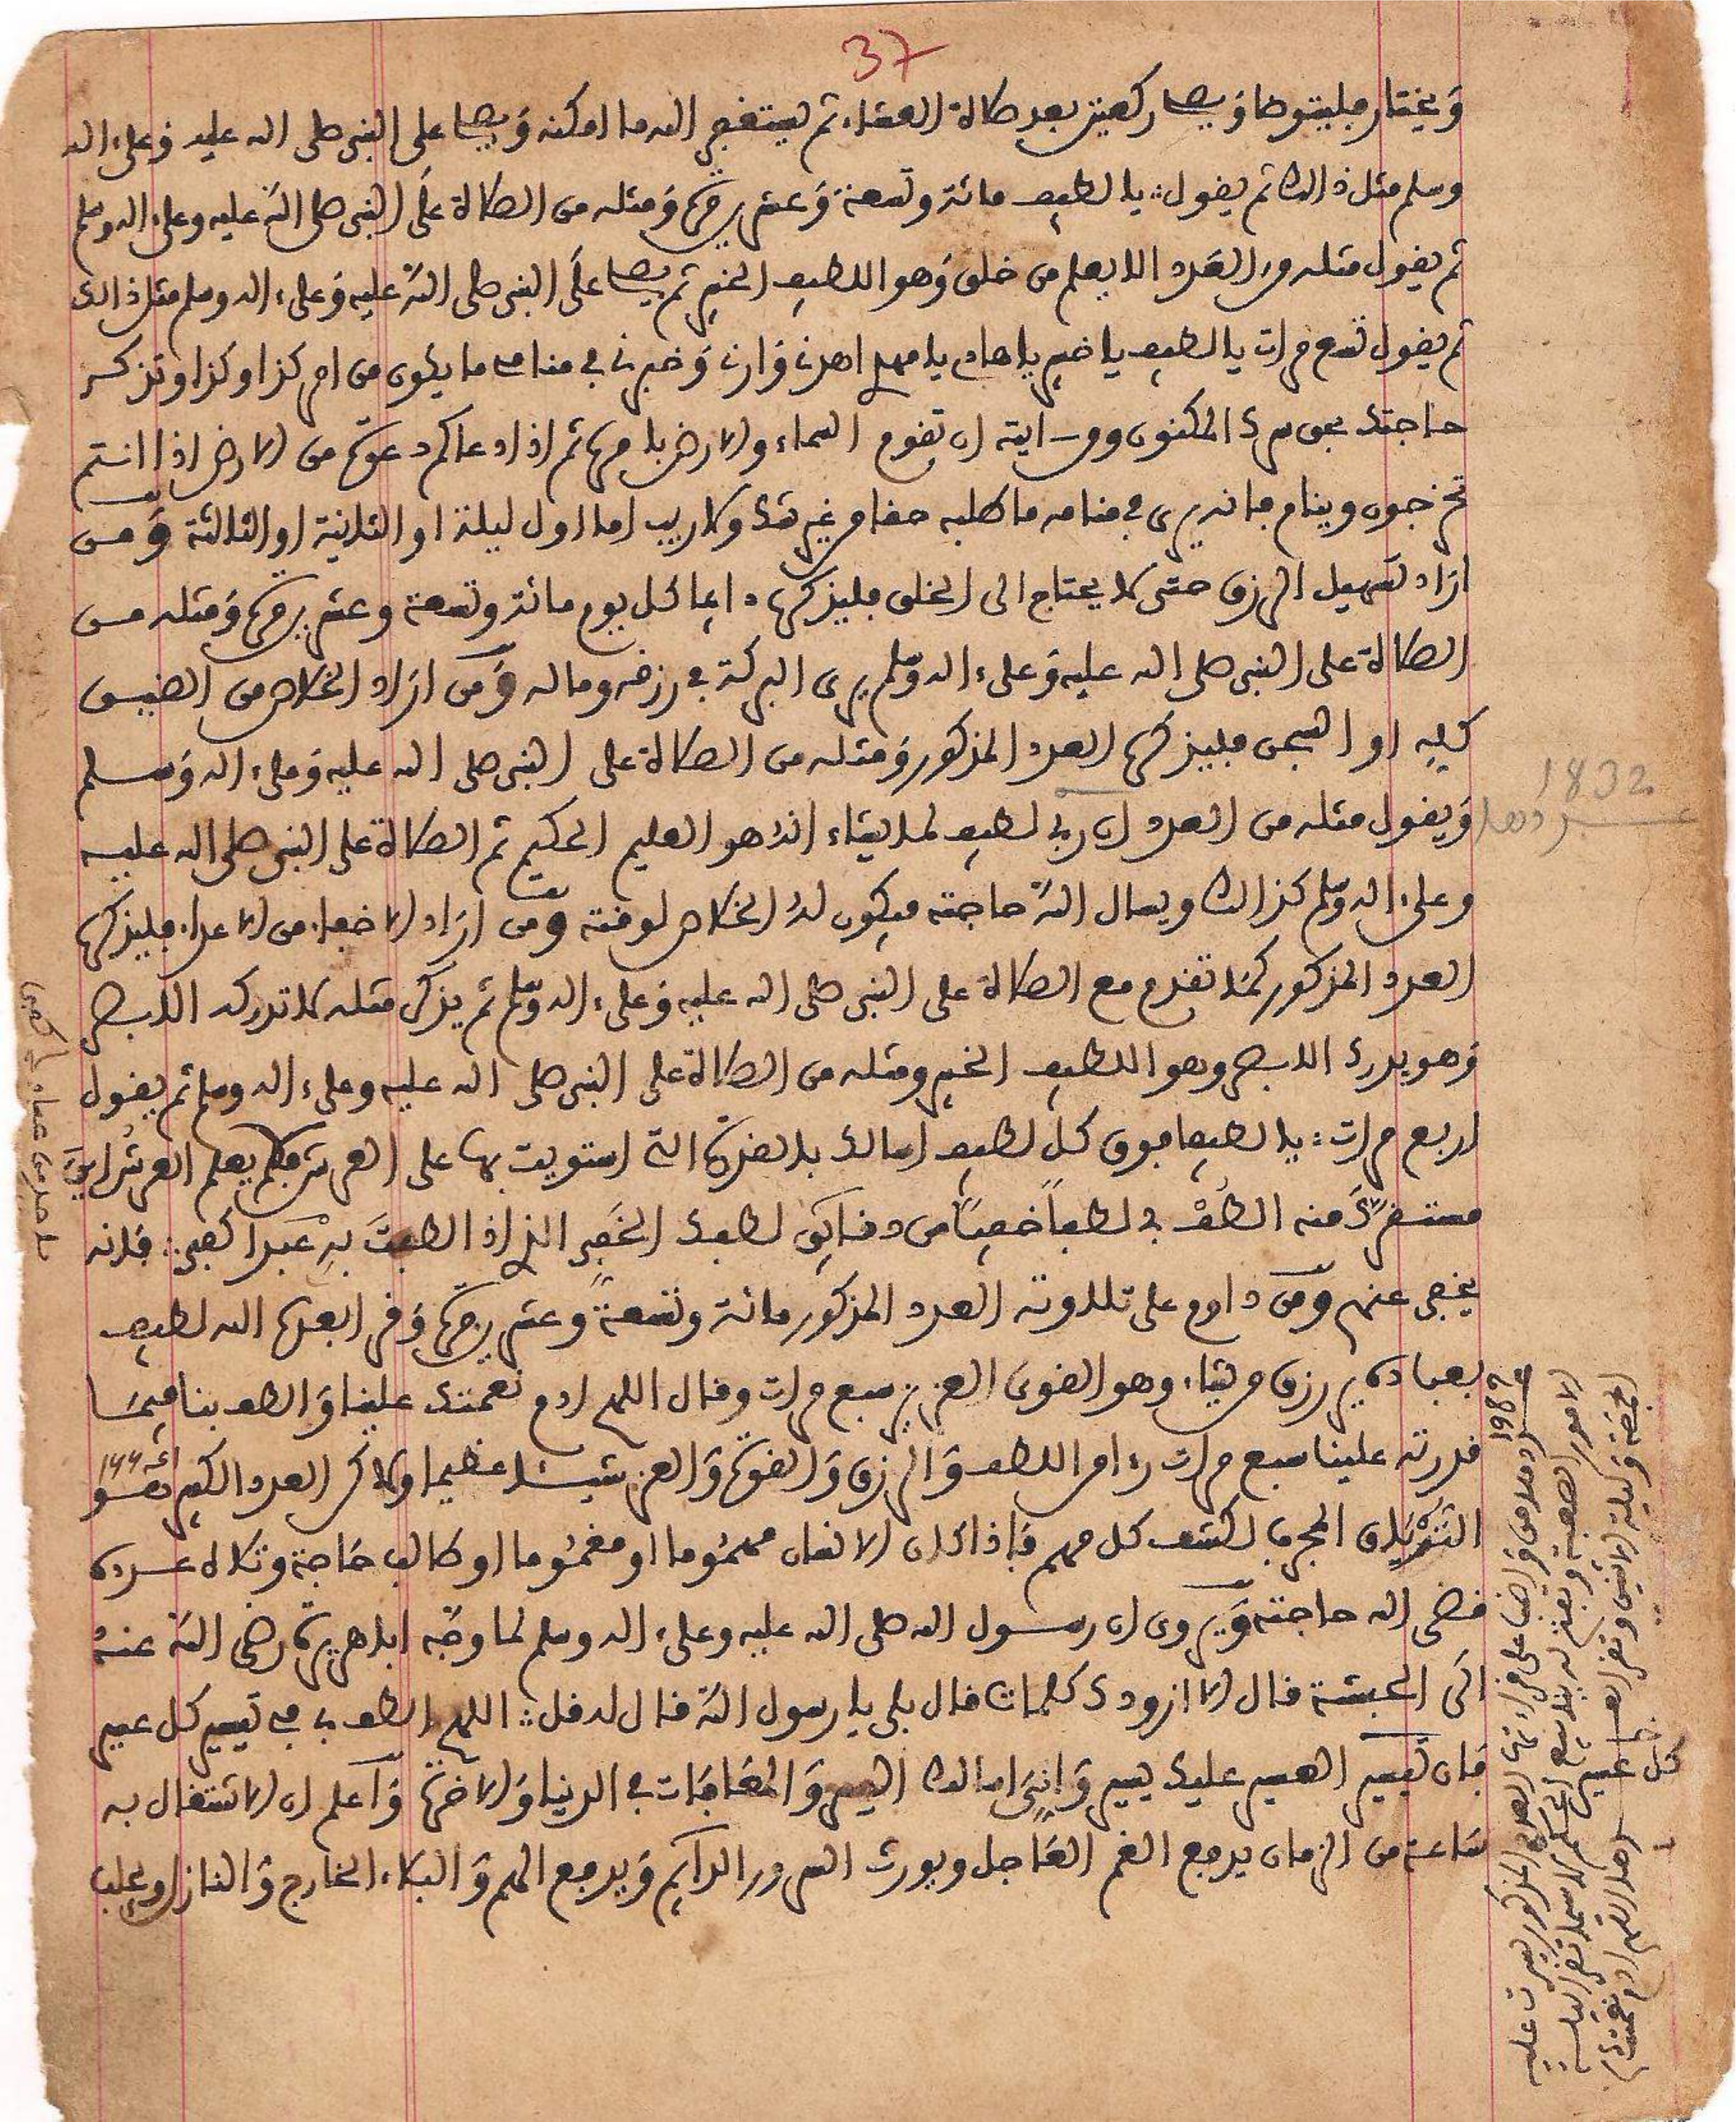 37
ويختار فليتوضا ويصل ركعتين بعد صلاة العشاء ثم ليستغفر الله ما امكنه ويصل على النبي صلى الله عليه وعلى اله
وسلم مثل ذالك ثم يقول: يا لطيف مائة وتسعة وعشرين مرة ومثله من الصلاة على النبي صلى الله عليه وعلى اله وسلم
ثم يقول مثله من العدد الا يعلم من خلق وهو اللطيف الخبير ثم يصل على النبي صلى الله عليه وعلى اله وسلم مثل ذالك
ثم يقول تسع مرات يا لطيف يا خبير يا هاد يا مبين اهدن وارن وخبرن في منامي ما يكون من امر كذا وكذا وتذكر
حاجتك بحق سرك المكنون ومن ايته ان تقوم السماء والارض بامره ثم اذا دعاكم دعوة من الارض اذا انتم
تخرجون وينام فانه يرى في منامه ما طلبه حقا من غير شك ولا ريب اما اول ليلة او الثانية او الثالثة ومن
اراد تسهيل الرزق حتى لا يحتاج الى الخلق فليذكره دايما كل يوم مائة وتسعة وعشرين مرة ومثله من
الصلاة على النبي صلى الله عليه وعلى اله وسلم يرى البركة في رزقه وماله ومن اراد الخلاص من الضيق
كليه او السجن فليذكره العدد المذكور ومثله من الصلاة على النبي صلى الله عليه وعلى اله وسلم
1832
ويقول مثله من العدد ان ربي لطيف لما يشاء انه هو العليم الحكيم ثم الصلاة على النبي صلى الله عليه
وعلى اله وسلم كذالك ويسال الله حاجته فيكون له الخلاص لوقته ومن اراد الاخفاء من الاعداء فليذكره
العدد المذكور كما تقدم مع الصلاة على النبي صلى الله عليه وعلى اله وسلم ثم يذكر مثله لا تدركه الابصر
وهو يدرك الابصر وهو اللطيف الخبير ومثله من الصلاة على النبي صلى الله عليه وعلى اله وسلم ثم يقول
اربع مرات: يا لطيفا فوق كل لطيف اسالك بالقدرة التي استويت بها على العرش فلم يعلم العرش اين
مستقرك منه الطف بي لطفا خفيا من دقائق لطفك الخفي الذي اذا الطفت به عبدا كفي: فانه
يخفى عنهم ومن داوم على تلاوته العدد المذكور مائة وتسعة وعشرين مرة وقرا بعده الله لطيف
بعباده يرزق من يشاء وهو القوي العزيز سبع مرات وقال اللهم ادم نعمتك علينا والطف بنا فيما
قدرته علينا سبع مرات راى من اللطف والرزق والقوة والعز شيئا عظيما ولاكن العدد الكبير هو
الترياق المجرب لكشف كل مهم فاذا كان الانسان مهموما او مغموما او طالب حاجة وتلاه عدده
قضى الله حاجته ويروى ان رسول الله صلى الله عليه وعلى اله وسلم لما وجه اباهريرة رضي الله عنه
الى الحبشة قال الا ازودك كلمات قال بلى يا رسول الله قال له قل: اللهم الطف بي في تيسير كل عسير
فان تيسير العسير عليك يسير وانى اسالك اليسر والمعافات في الدنيا والاخرة واعلم ان الاشتغال به
ساعة من الزمان يدفع الغم العاجل ويورث السرور الدايم ويدفع الهم والبلاء الخارج والنازل ويجلب
كل عسير